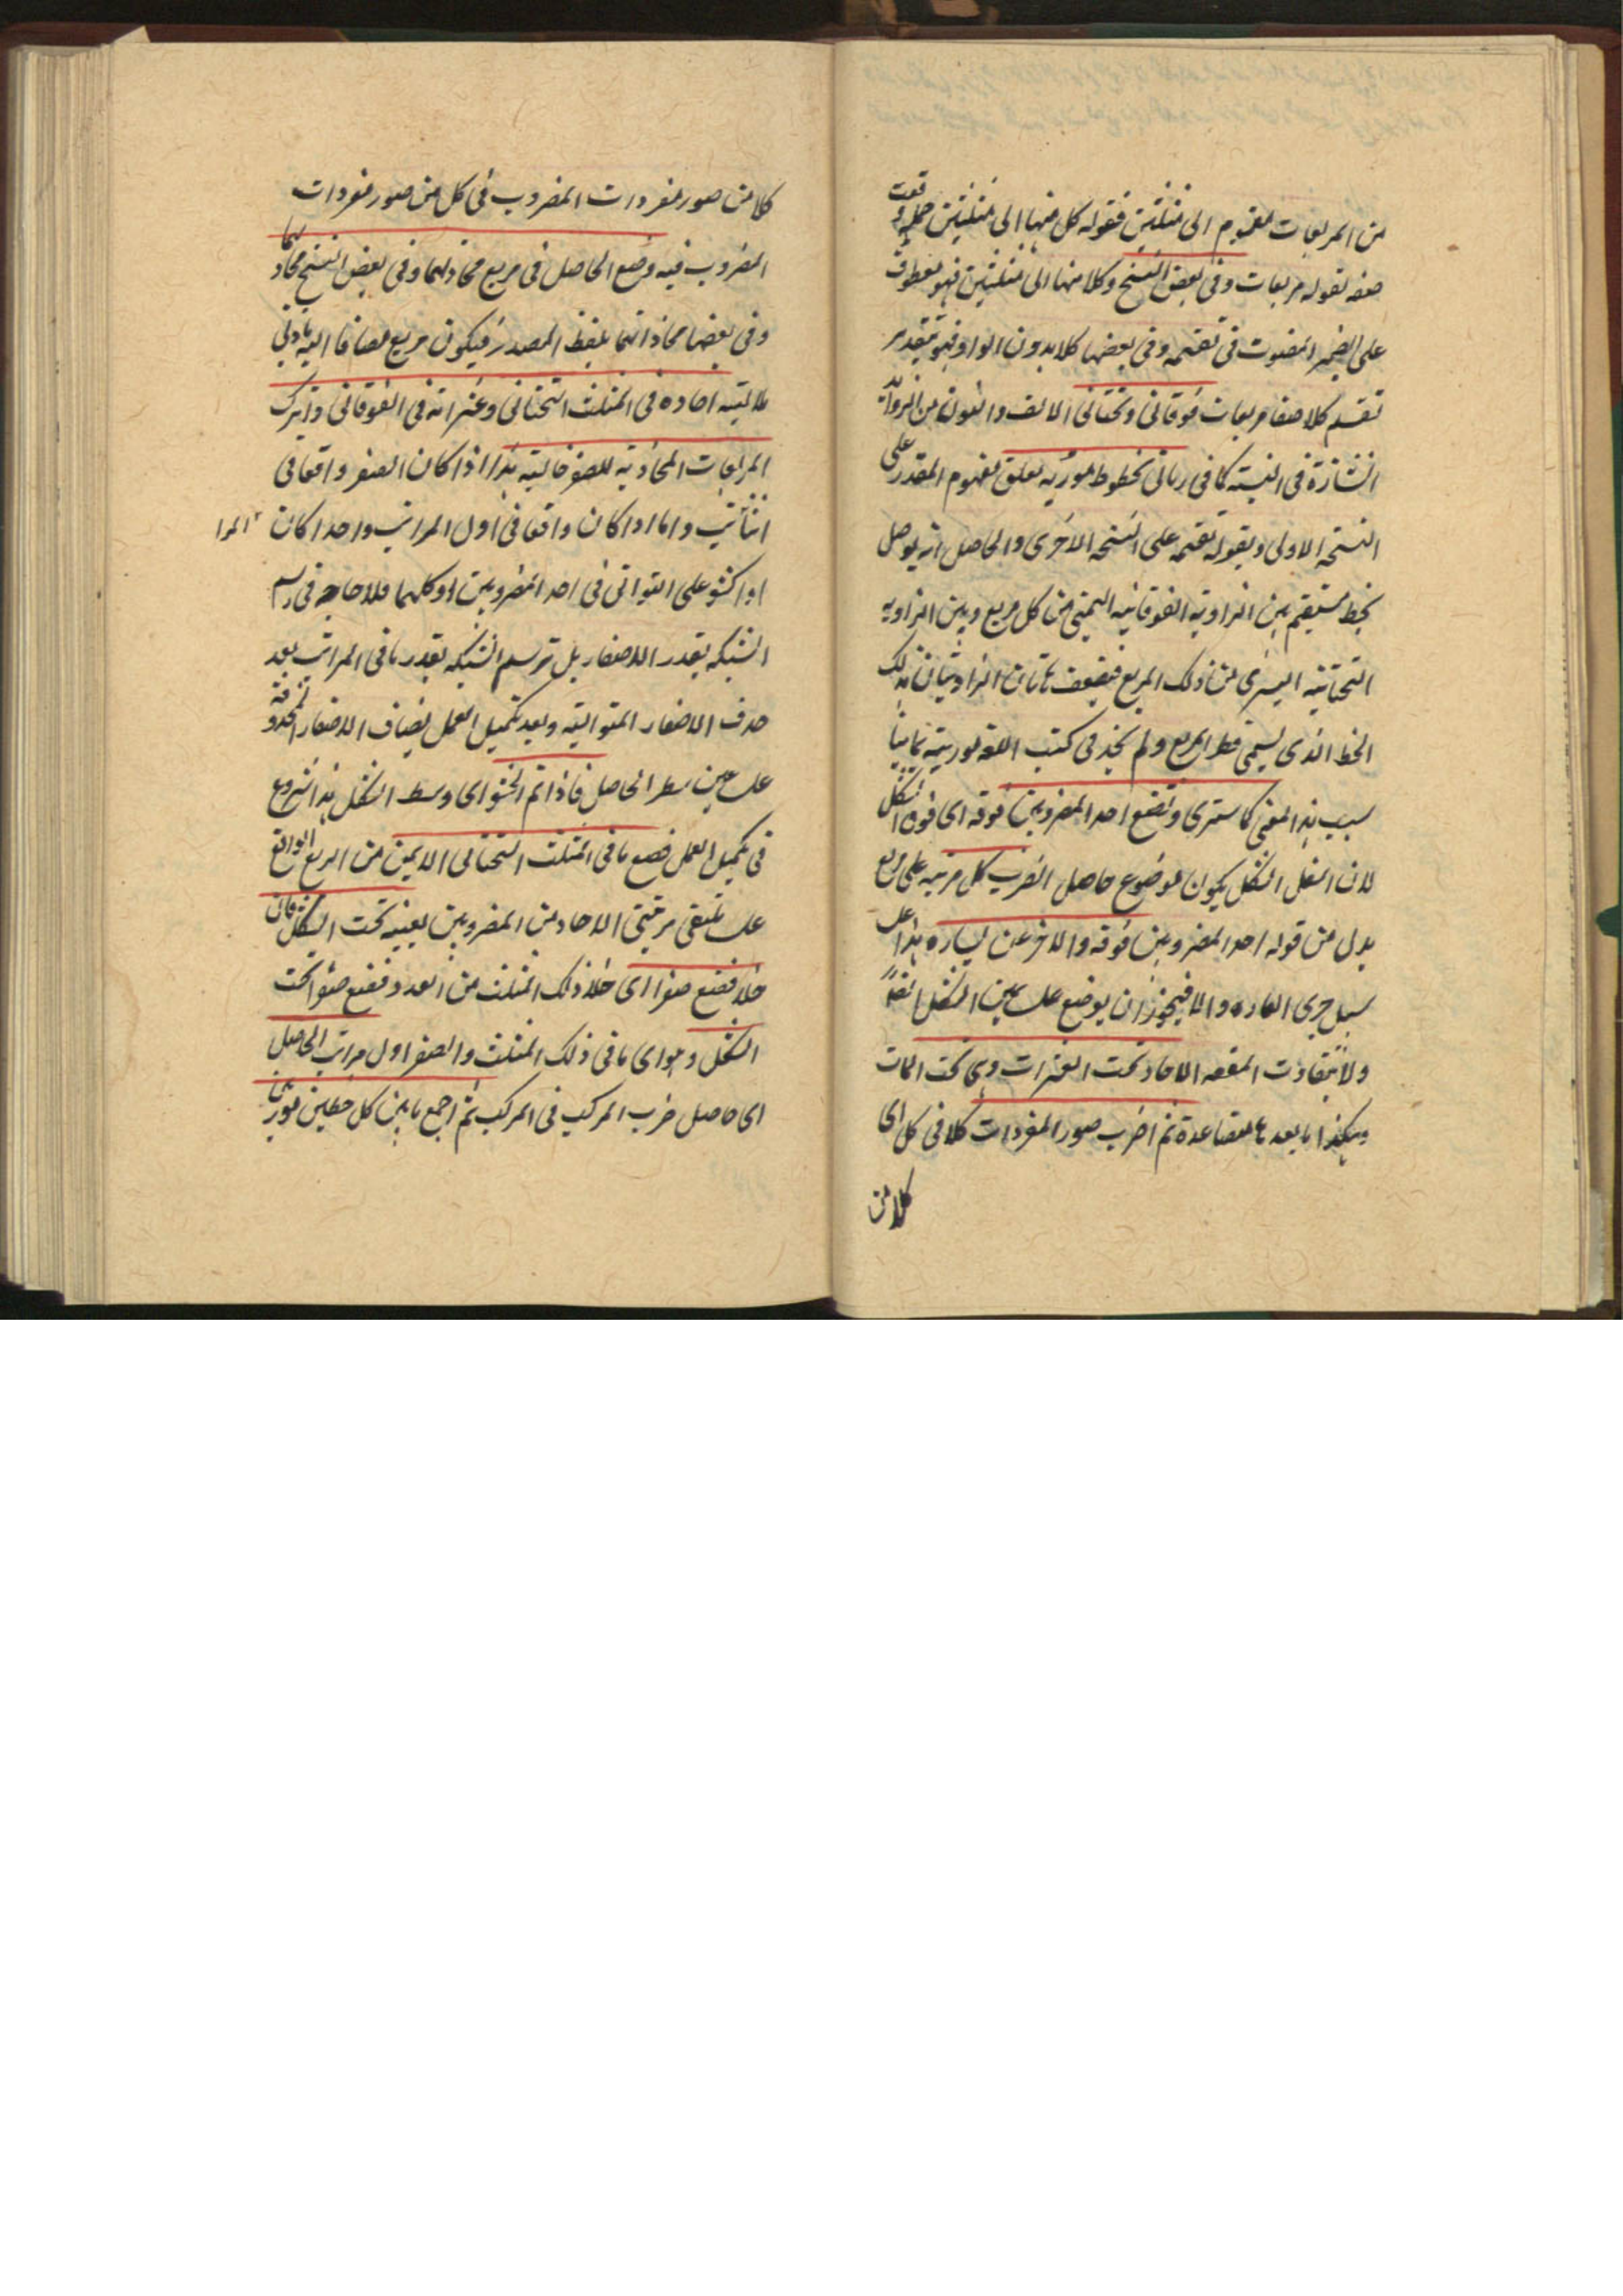 من المربعات مقسوم الى مثلثين فقوله كل منها الى مثلثين جملة وقعت
صفه لقوله مربعات وفى بعض النسخ وكلا منها الى مثلثين فهو معطوف
على الضمير المنصوب فى تقسمه وفى بعضها كلا بدون الواو فهو بتقدير
تقسم كلا صفة مربعات فوقانى وتحتانى الالف والنون من الزوائد
الشاذة فى النسبة كما فى ربانى بخطوط موربه متعلق بمقسوم المقدر على
النسخه الاولى وبقوله تقسمه على النسخه الاخرى والحاصل انه يوصل
بخط مستقيم بين الزاوية الفوقانيه اليمنى من كل مربع وبين الزاويه
التحتانيه اليسرى من ذلك المربع فينصف هاتان الزاويتان بذلك
الخط الذى يسمى قطر المربع ولم نجد فى كتب اللغه توريبه
سبب هذا المعنى كما سترى وتضع احد المضروبين فوقه اى فوق الشكل
لان اسفل الشكل يكون موضوع حاصل الضرب كل مرتبه على مربع
بدل من قوله احد المضروبين فوقه والاخر عن يساره هذا على
سبيل جرى العاده والا فيجوز ان يوضع على يمين الشكل ايضا
الاحاد تحت العشرات وهى تحت المات
وهكذا ما بعد ها متصاعدة ثم اضرب صور المفردات كلا فى كل اى
كلا من
كلا من صور مفردات المضروب فى كل من صور مفردات
المضروب فيه وضع الحاصل فى مربع محاذ لهما وفى بعض النسخ محاذيهما
وفى بعضها محاذاتهما بلفظ المصدر فيكون مربع مضافا اليه بادنى
ملابسه احاده فى المثلث التحتانى وعشراته فى الفوقانى واترك
المربعات المحاذية للصفر خاليه هذا اذا كان الصفر واقعا فى
اثنائه واما اذا كان واقعا فى اول المراتب واحدا كان
او اكثر على التوالى فى احد المضروبين او كليهما فلا حاجه فى رسم
الشبكه بقدر الاصفار بل ترسم الشبكه بقدر باقى المراتب بعد
حذف الاصفار المتواليه وبعد تكميل العمل يضاف الاصفار المحذوفة
على يمين سطر الحاصل فاذا تم الحشو اى وسط الشكل هذا شروع
فى تكميل العمل فضع ما فى المثلث التحتانى الايمن من المربع الواقع
على ملتقى مرتبتى الاحاد من المضروبين بعينه تحت الشكل فان
خلا فضع صفرا اى خلا ذلك المثلث من العدد فضع صفرا تحت
الشكل وهو اى ما فى ذلك المثلث والصفر اول مراتب الحاصل
اى حاصل ضرب المركب فى المركب ثم اجمع ما بين كل خطين موربين